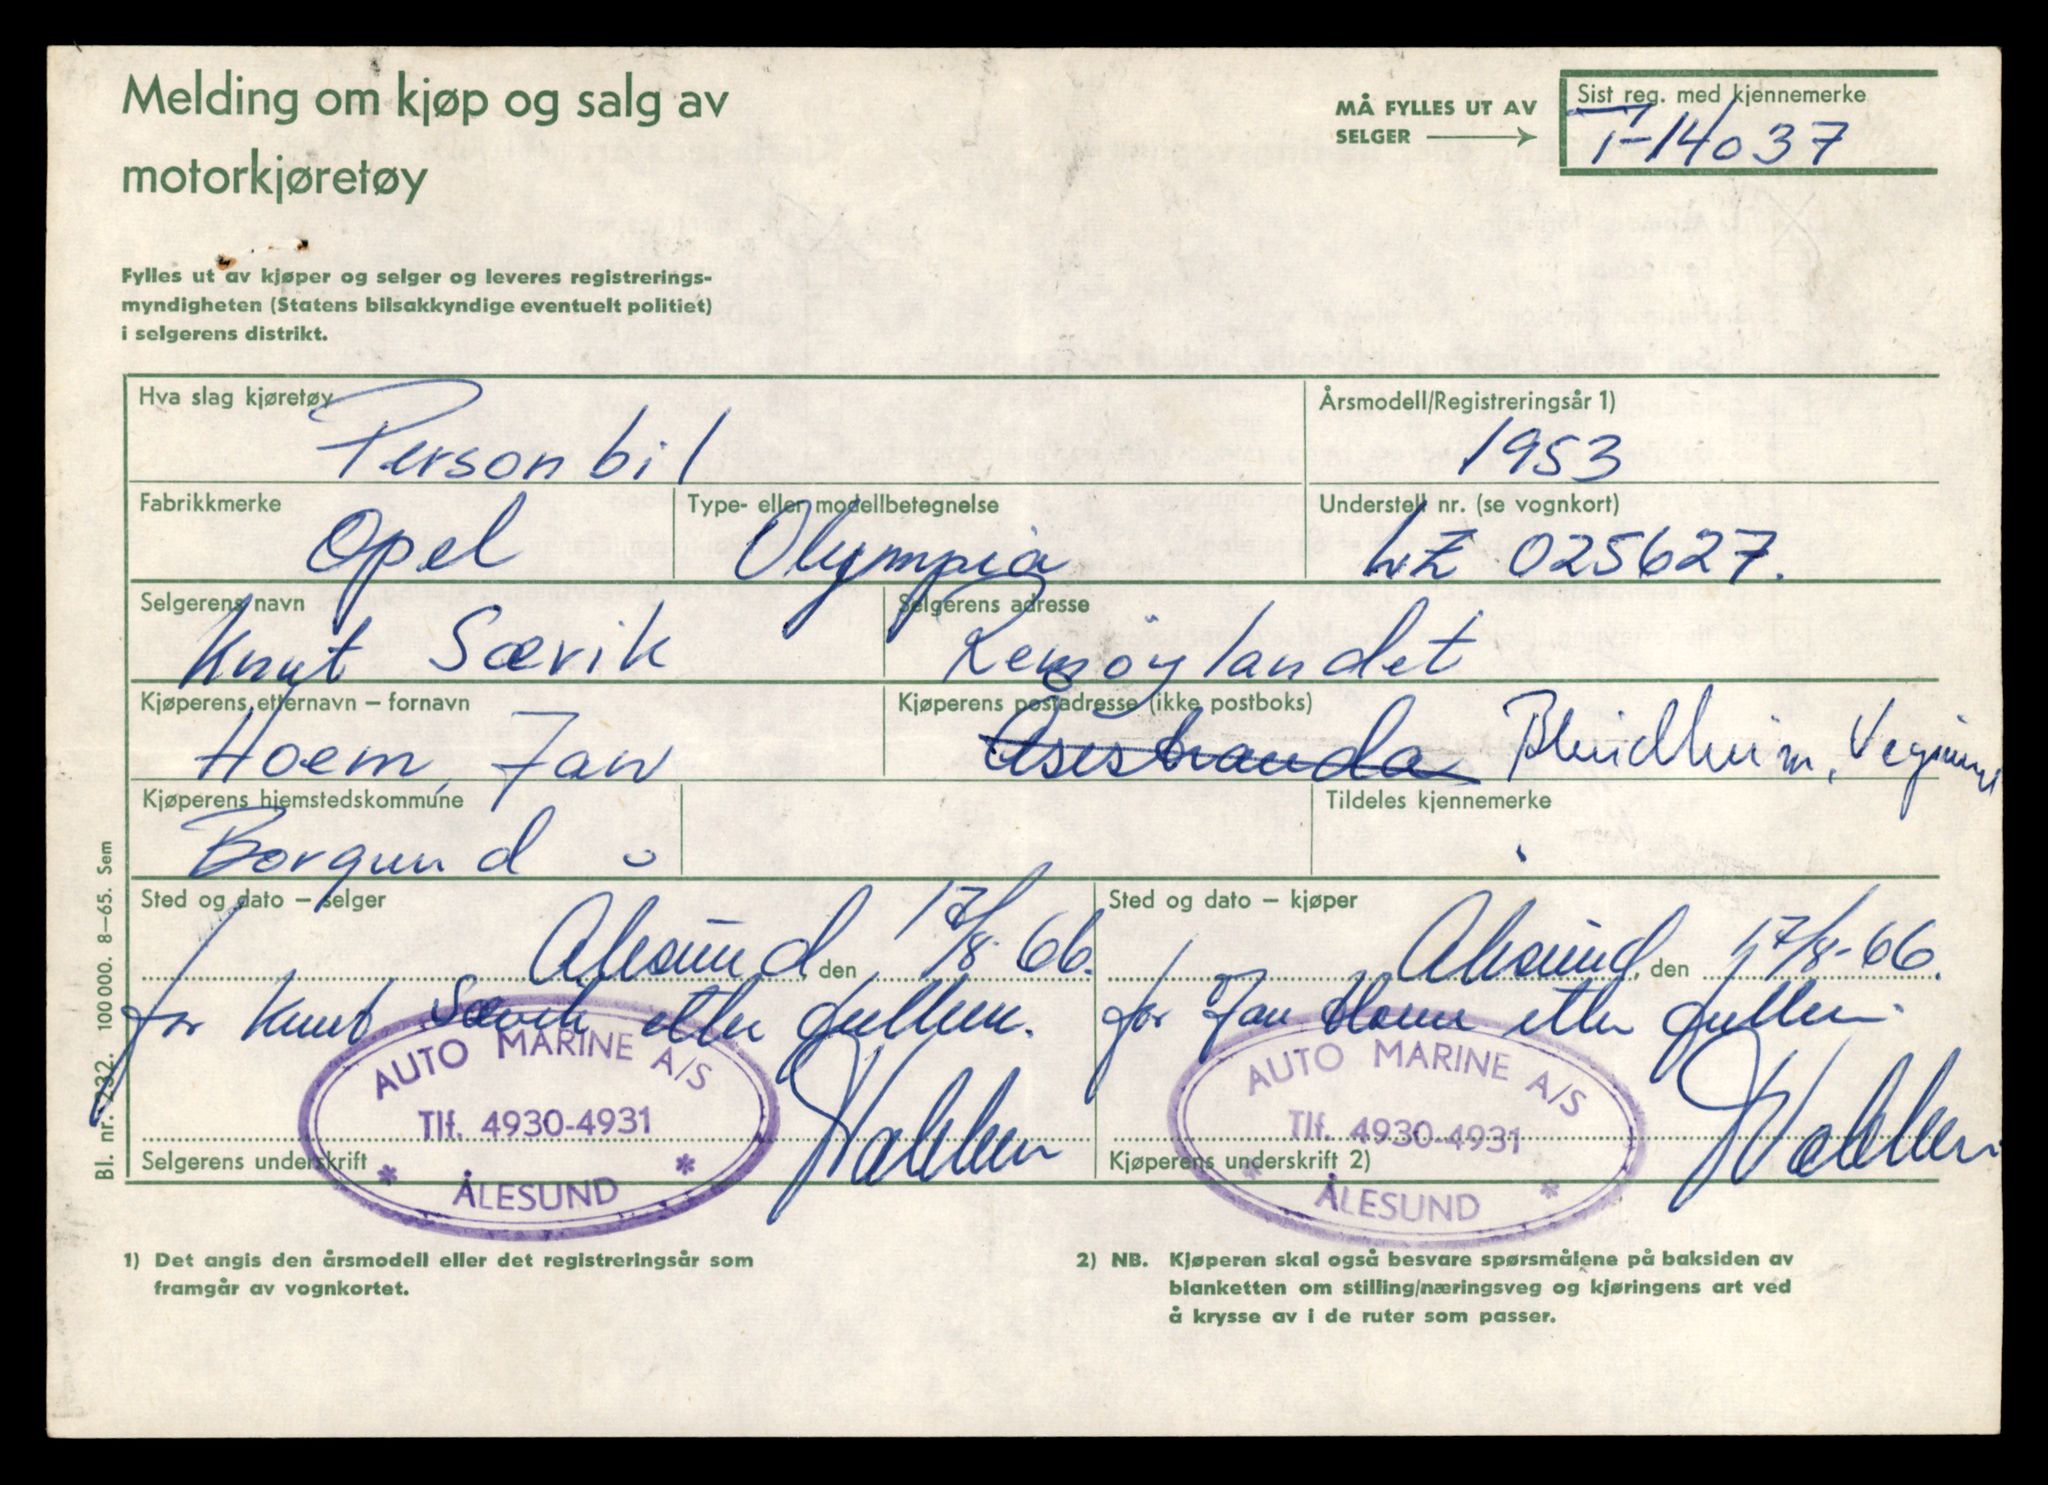 Melding om kjøp og salg av
motorkjøretøy
MÅ FYLLES UT AV
SELGER
Sist reg. med kjennemerke
T-14037
Fylles ut av kjøper og selger og leveres registrerings-
myndigheten (Statens bilsakkyndige eventuelt politiet)
i selgerens distrikt.
Hva slag kjøretøy
Personbil
Årsmodell/Registreringsår 1)
1953
Fabrikkmerke
Opel
Type- eller modellbetegnelse
Olympia
Understell nr. (se vognkort)
LZ 025627.
Selgerens navn
Knut Sævik
Selgerens adresse
Remöylandet
Kjøperens etternavn – fornavn
Hoem, Jan
Kjøperens postadresse (ikke postboks)
Åsestranda Blindheim,
Kjøperens hjemstedskommune
Borgund
Tildeles kjennemerke
Sted og dato – selger
Ålesund, den 17/8-66.
Sted og dato – kjøper
Ålesund, den 17/8-66.
for Knut Sævik etter fullm.
for Jan Hoem etter fullm.
AUTO MARINE A/S
Tlf. 4930-4931
ÅLESUND
AUTO MARINE A/S
Tlf. 4930-4931
ÅLESUND
Selgerens underskrift
Kjøperens underskrift 2)
Bl. nr. 732. 100 000. 8–65. Sem
1) Det angis den årsmodell eller det registreringsår som
framgår av vognkortet.
2) NB. Kjøperen skal også besvare spørsmålene på baksiden av
blanketten om stilling/næringsveg og kjøringens art ved
å krysse av i de ruter som passer.